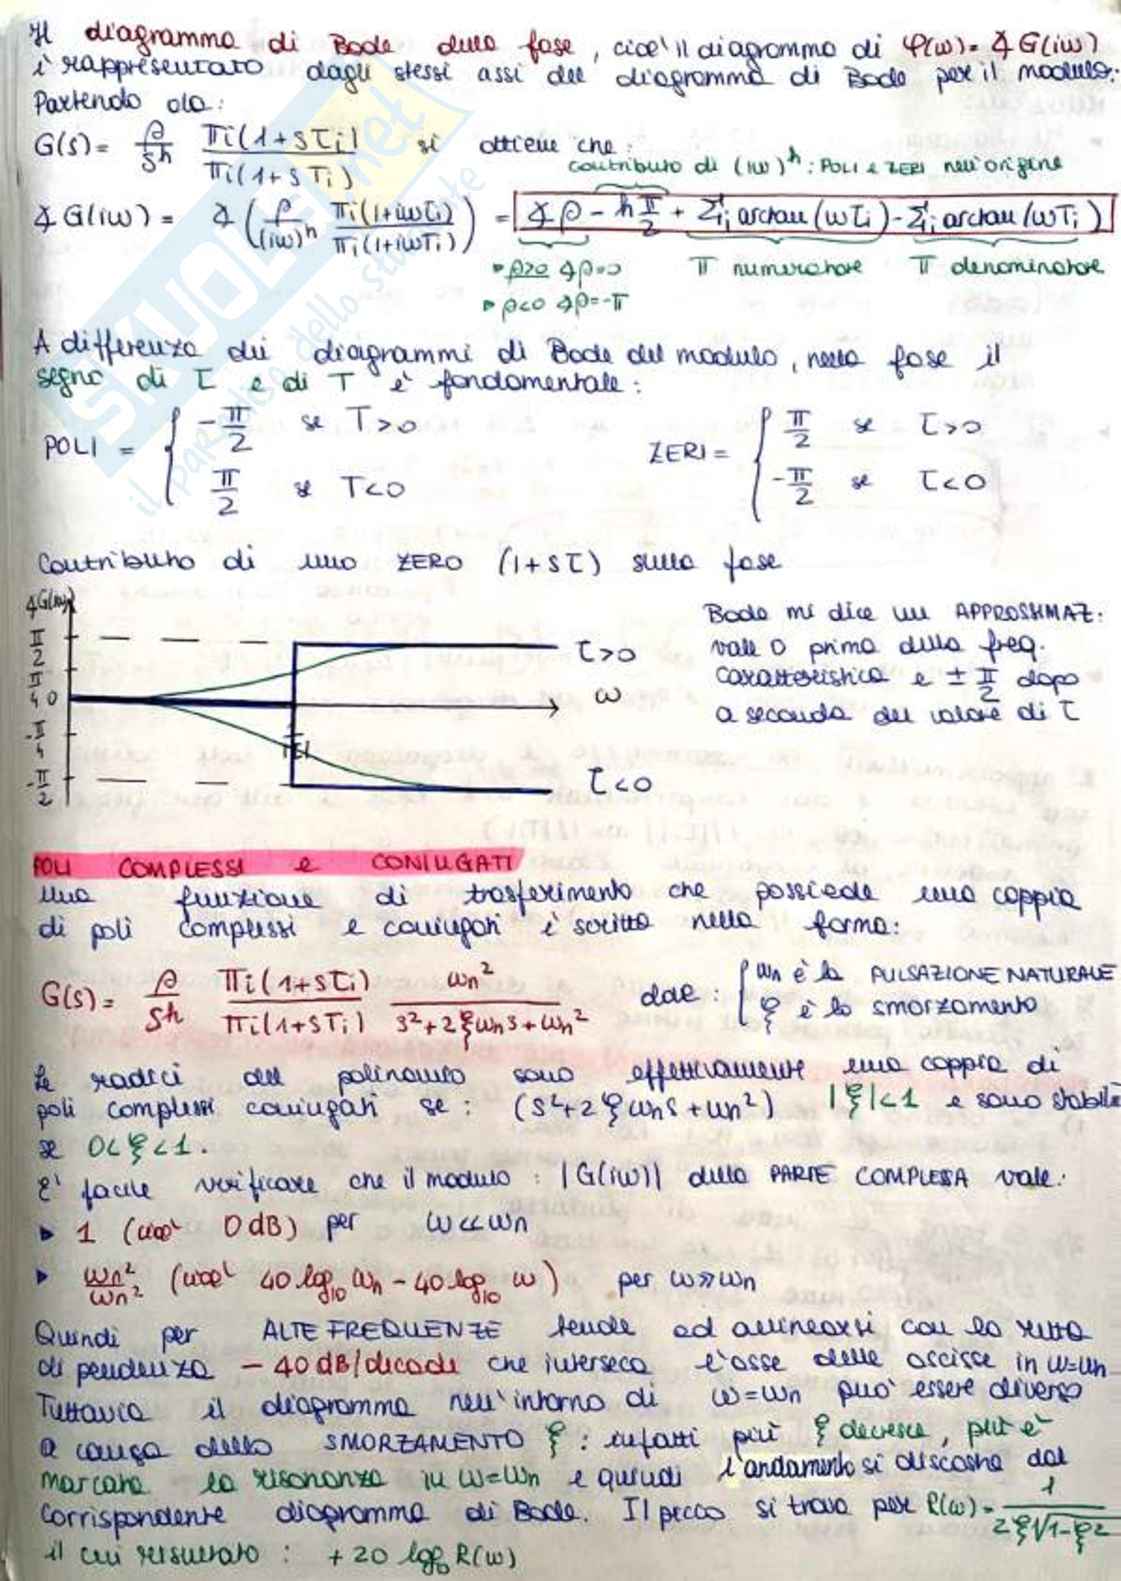 Il diagramma di Bode della fase, cioè il diagramma di φ(ω)= ∡G(iω)
è rappresentato dagli stessi assi del diagramma di Bode per il modulo.
Partendo da:
G(s)= ρ/s^h Πi(1+sτi)/Πi(1+sTi) si ottiene che:
contributo di (iω)^h: POLI e ZERI nell'origine
∡G(iω) = ∡(ρ/(iω)^h Πi(1+iωτi)/Πi(1+iωTi)) = ∡ρ - h π/2 + Σi arctan(ωτi) - Σi arctan(ωTi)
▸ρ>0 ∡ρ=0 π numeratore π denominatore
▸ρ<0 ∡ρ=-π
A differenza dei diagrammi di Bode del modulo, nella fase il
segno di τ e di T è fondamentale:
POLI = { -π/2 se T>0 ZERI = { π/2 se τ>0
π/2 se T<0 -π/2 se τ<0
Contributo di uno ZERO (1+sτ) sulla fase
∡G(iω)
π/2
π/4
0
-π/4
-π/2
τ>0
ω
1/|τ|
τ<0
Bode mi dice un APPROSSIMAZ:
vale 0 prima della freq.
caratteristica e ±π/2 dopo
a seconda del valore di τ
POLI COMPLESSI e CONIUGATI
Una funzione di trasferimento che possiede una coppia
di poli complessi e coniugati è scritta nella forma:
G(s)= ρ/s^h Πi(1+sτi)/Πi(1+sTi) ωn²/s²+2ξωns+ωn² dove: { ωn è la PULSAZIONE NATURALE
ξ è lo smorzamento
Le radici del polinomio sono effettivamente una coppia di
poli complessi coniugati se: (s²+2ξωns+ωn²) |ξ|<1 e sono stabili
se 0<ξ<1.
E' facile verificare che il modulo: |G(iω)| della PARTE COMPLESSA vale:
▸ 1 (cioè 0 dB) per ω<<ωn
▸ ωn²/ωn² (cioè 40 log10 ωn - 40 log10 ω) per ω>>ωn
Quindi per ALTE FREQUENZE tende ad allinearsi con la retta
di pendenza -40 dB/decade che interseca l'asse delle ascisse in ω=ωn
Tuttavia il diagramma nell'intorno di ω=ωn può essere diverso
a causa dello SMORZAMENTO ξ: infatti più ξ decresce, più è
marcata la risonanza in ω=ωn e quindi l'andamento si discosta dal
corrispondente diagramma di Bode. Il picco si trova per R(ω)= 1/2ξ√1-ξ²
il cui risultato: +20 log10 R(ω)
SKUOLA.net
il paradiso dello studente